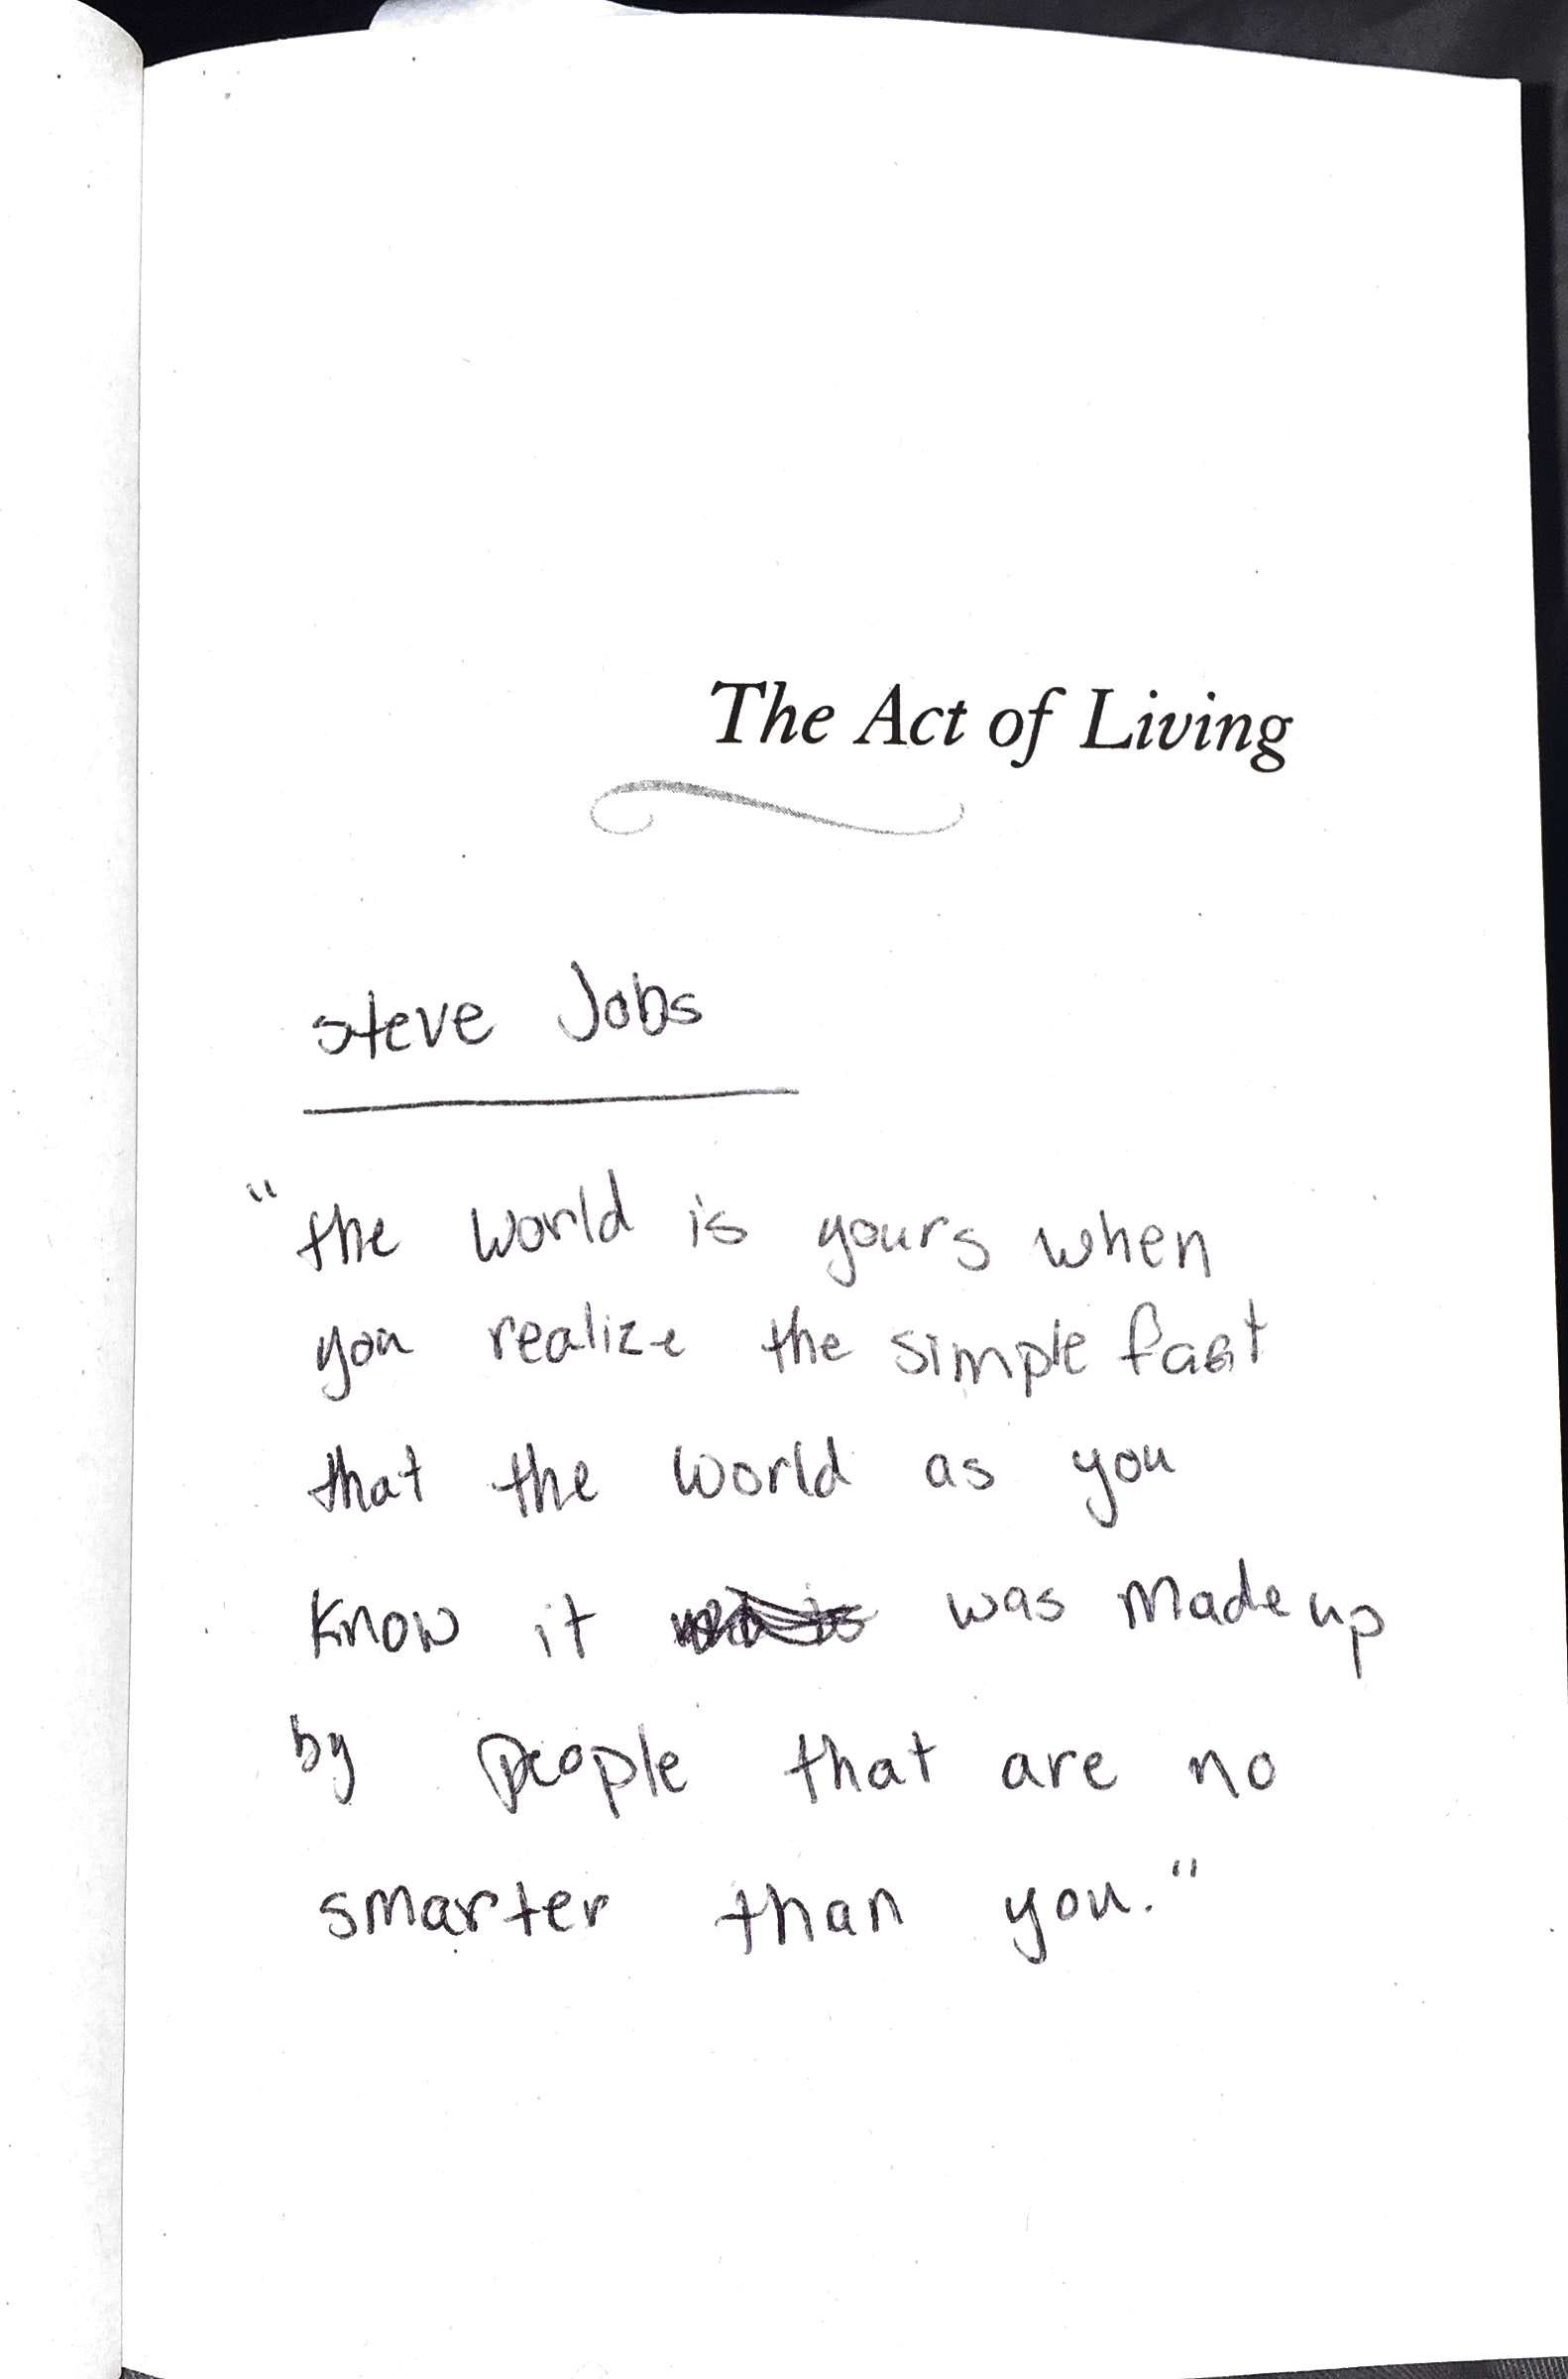 The Act of Living
steve Jobs
"the world is yours when
you realize the simple fact
that the world as you
know it was made up
by people that are no
smarter than you."